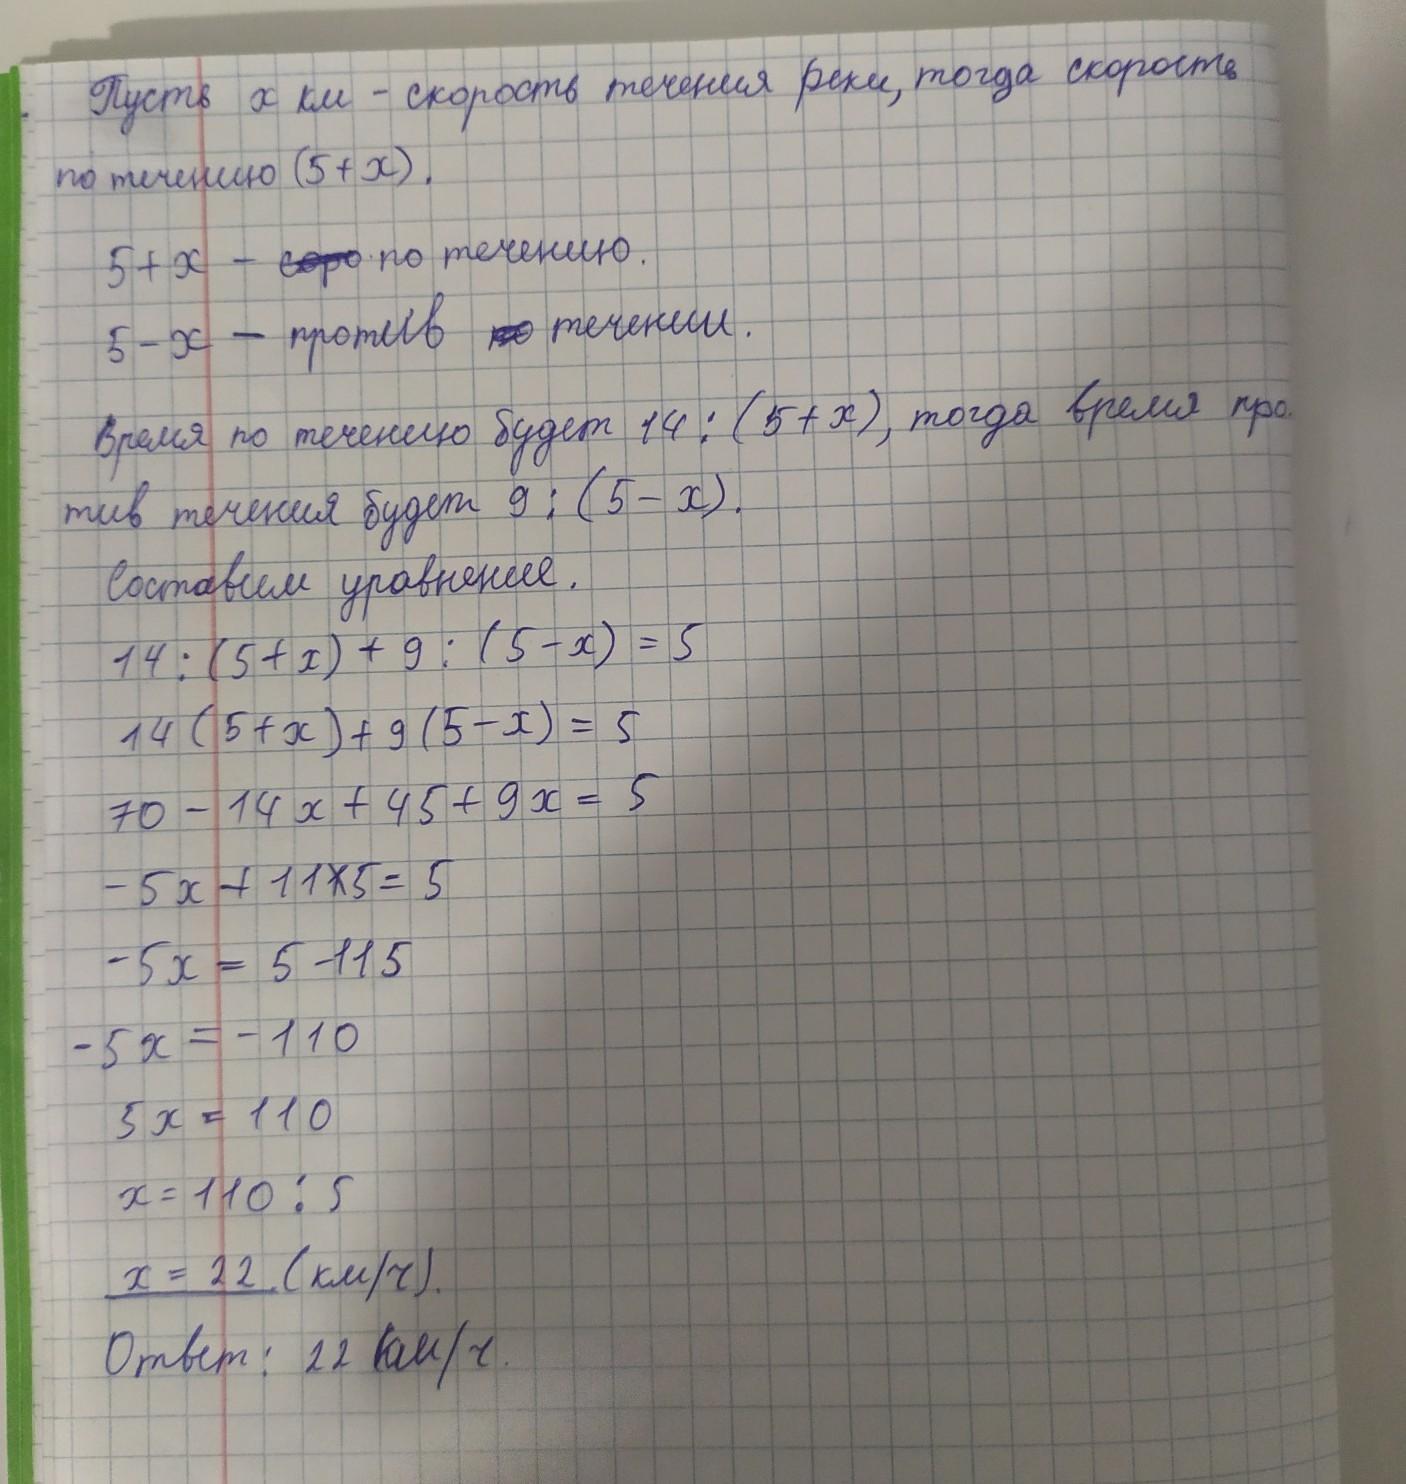 Пусть х км - скорость течения реки, тогда скорость
по течению (5+х).
5+х - по течению.
5-х - против течении.
Время по течению будет 14:(5+х), тогда время про
тив течения будет 9:(5-х).
Составим уравнение.
14:(5+х)+9:(5-х)=5
14(5+х)+9(5-х)=5
70-14х+45+9х=5
-5х+115=5
-5х=5-115
-5х=-110
5х=110
х=110:5
х=22 (км/ч).
Ответ: 22 км/ч.